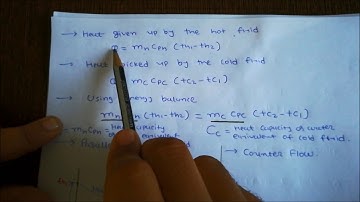 → Heat given up by the hot fluid
= mh Cph (th1 - th2)
→ Heat picked up by the cold fluid
Q = mc Cpc (tc2 - tc1)
→ Using energy balance
(th1 - th2) = mc Cpc (tc2 - tc1)
= mh Cph = Heat capacity Cc = heat capacity or water
equivalent of cold fluid.
→ Counter Flow